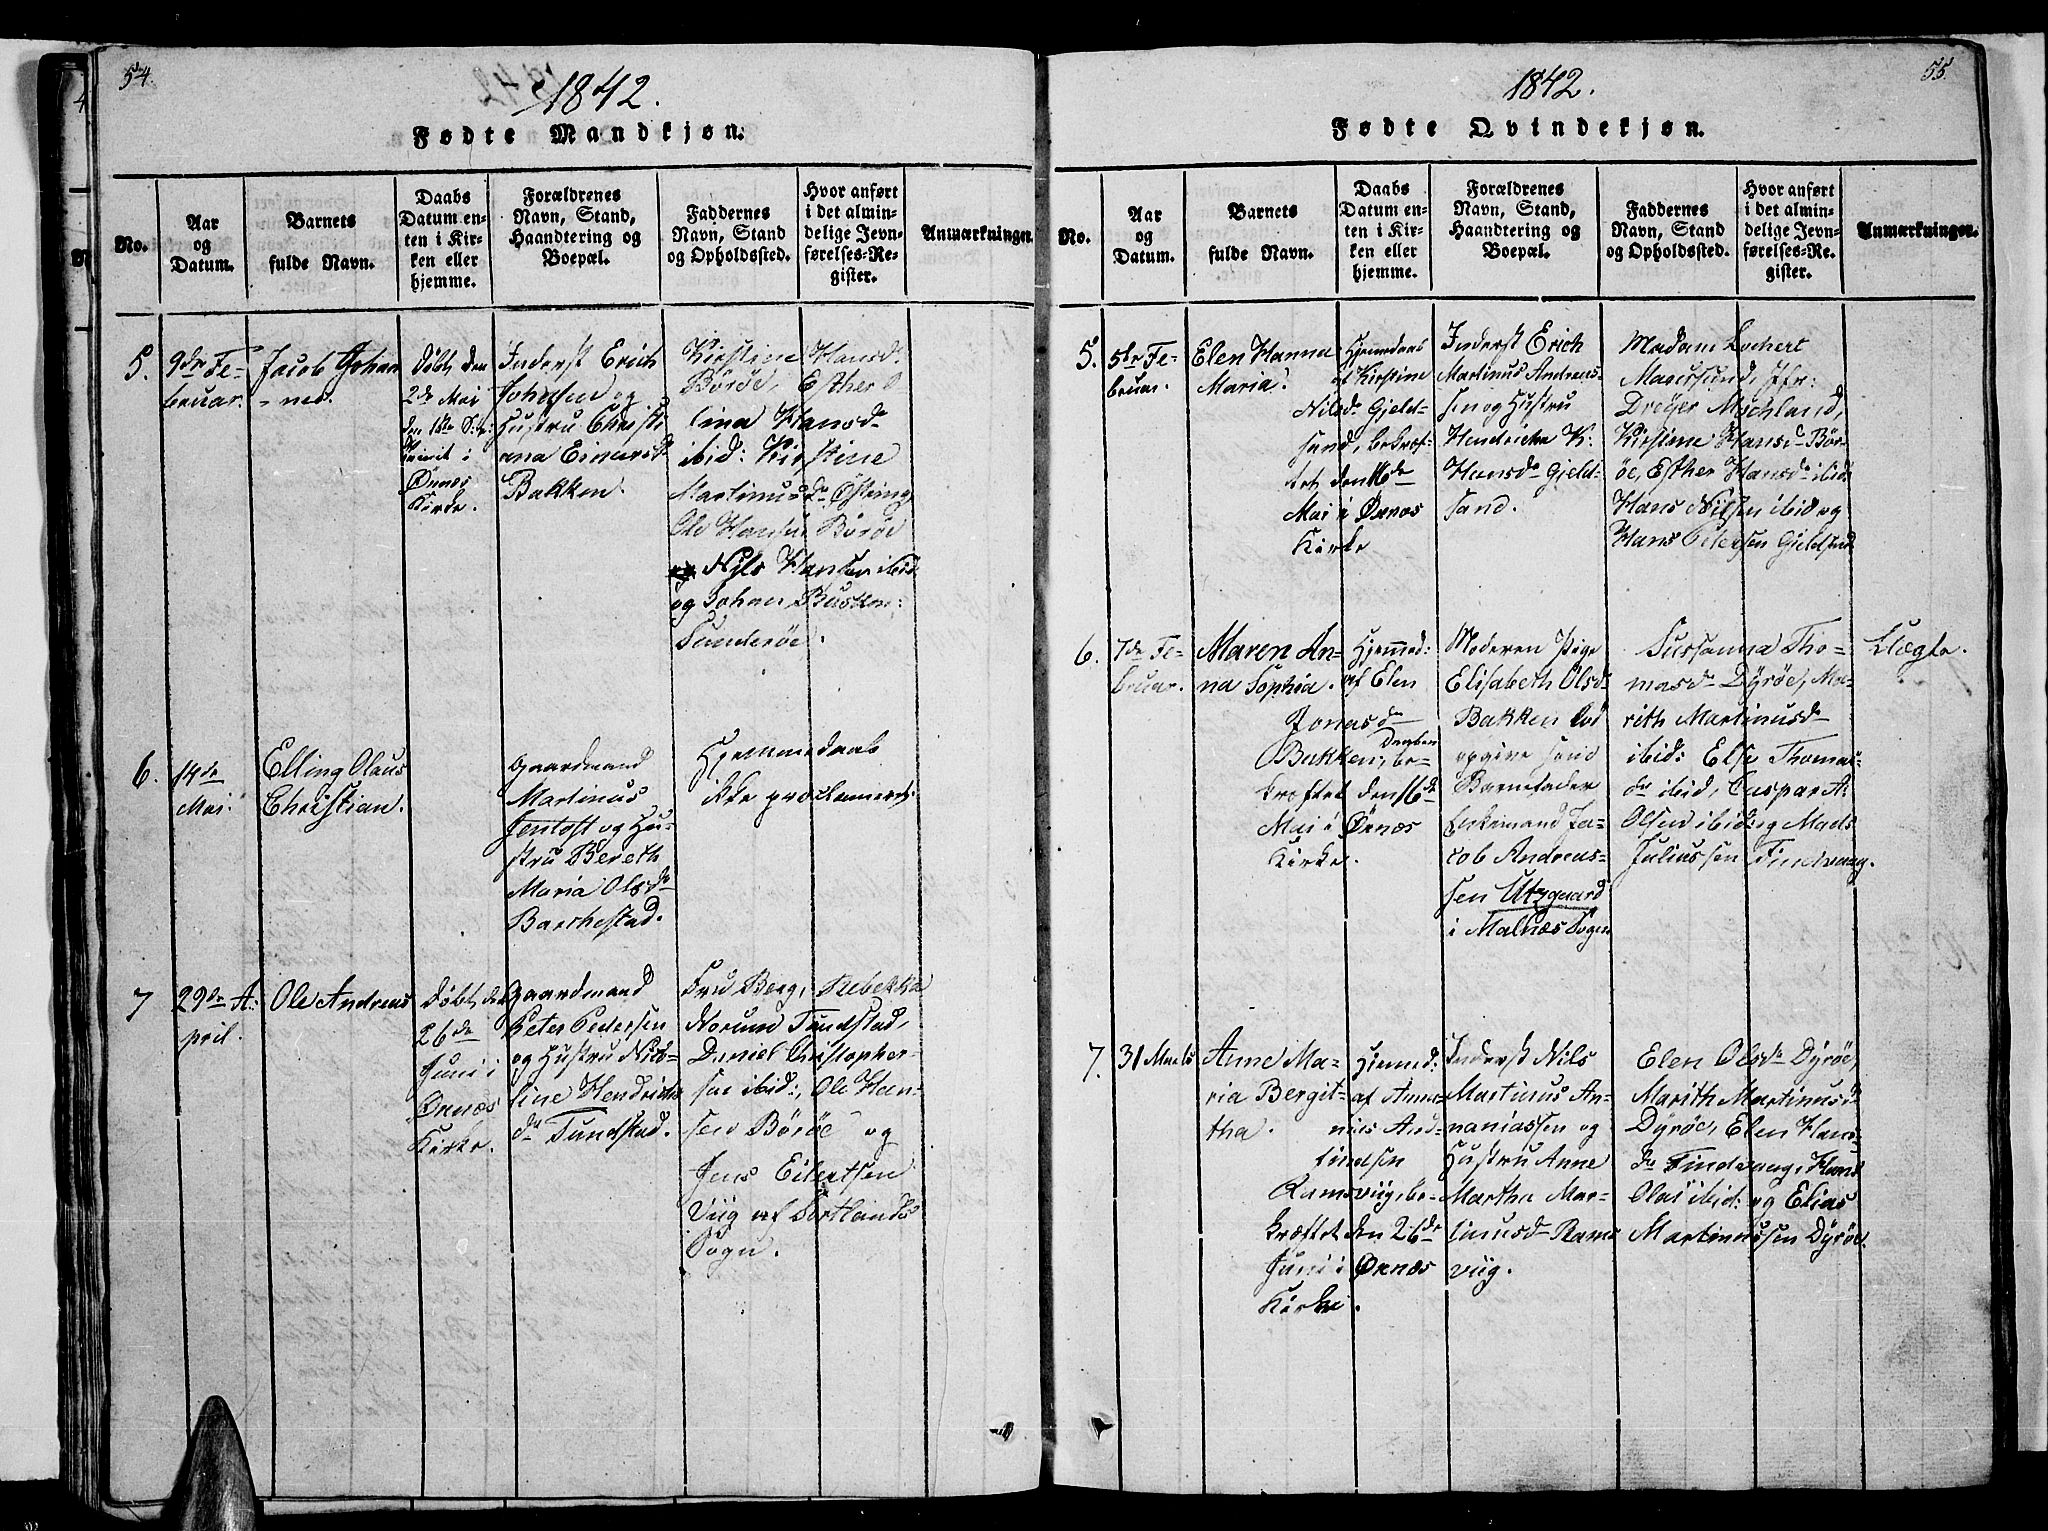 54.
1842.
Fødte Mandkjøn.
No.
Aar
og
Datum.
Barnets
fulde Navn.
Daabs
Datum en-
ten i Kir-
ken eller
hjemme.
Forældrenes
Navn, Stand,
Haandtering og
Boepæl.
Faddernes
Navn, Stand
og Opholdssted.
Hvor anført
i det almin-
delige Jevn-
førelses-Re-
gister.
Anmærkninger.
5.
9de Fe-
bruar.
Jacob Johan
-nes.
Døbt den
2de Mai
den 1ste
i
Ørnæs
Kirke.
Inderst Erich
Johnsen og
Hustru Christi
ana Einarsd
Bakken.
Kirstine Hansd.
Böröe, Esther O
lina Hansd
ibid: Kirstine
Martinusd
Ole Hansen Böröe
Nils Hansen ibid
og Johan
6.
14de
Mai.
Elling Olaus
Christian.
Gaardmand
Martinus
Jentoft og Hu-
stru Bereth
Maria Olsd
Barkestad.
Hjemmedaab
ikke proclameret.
7
29de A-
pril.
Ole Andreas
Døbt den
26de
Juni i
Ørnæs
Kirke.
Gaardmand
Peter Pedersen
og Hustru Nico-
line Hendrichs
dr Tundstad.
Fru Berg, Rebekka
Norum Tundstad,
Daniel Christopher-
sen ibid:, Ole Han-
sen Böröe og
Jens Eilertsen
Viig af Sortlands
Sogn.
55.
1842.
Fødte Qvindekjøn.
No.
Aar
og
Datum.
Barnets
fulde Navn.
Daabs
Datum en-
ten i Kir-
ken eller
hjemme.
Forældrenes
Navn, Stand,
Haandtering og
Boepæl.
Faddernes
Navn, Stand
og Opholdssted.
Hvor anført
i det almin-
delige Jevn-
førelses-Re-
gister.
Anmærkninger.
5.
5te Fe-
bruar.
Elen Hanna
Maria.
Hjemdøbt
af Kirstine
Nilsd. Gjeld-
sand, bekræf-
tet den 16de
Mai i Ørnæs
Kirke
Inderst Erich
Martinus Andreas-
sen og Hustru
Hendricka K:
Hansdr Gjeld-
sand.
Madam Lockert
Maursund,
Dreyer
Kirstine Hansd Bör-
öe, Esther Hansd ibid
Hans Nilsen ibid og
Hans Petersen Gjeldsand
6.
7de Fe-
bruar.
Maren An-
na Sophia.
Hjemmed:
af Elen
Jonasd
Bakken, be-
kræftet den 16de
Mai i Ørnæs
Kirke.
Moderen Pige
Elisabeth Olsd
Bakken
opgive som
Barnefader
Enkemand Ja-
cob Andreas-
sen Utzgaard
i Malnæs Sogn
Sussanna Tho-
masd Dyröe, Ma-
rith Martinusd
ibid: Else Thomas-
dr ibid, Caspar A:
Olsen ibid og Mads
Juliussen Tindvaag.
Uægte.
7.
31 Marts
Anne Ma-
ria Bergit-
tha.
Hjemmed:
af Anna-
nias And-
Ramsviig, be-
kræftet den 26de
Juni i Ørnæs
Kirke.
Inderst Nils
Martinus An-
naniassen og
Hustru Anne
Martha Mar-
tinusd Rams
viig.
Elen Olsd Dyröe,
Marith Martinusd
Dyröe, Elen Hans-
dr Tindvaag, Hans
Olai ibid: og Elias
Martinussen Dyröe.